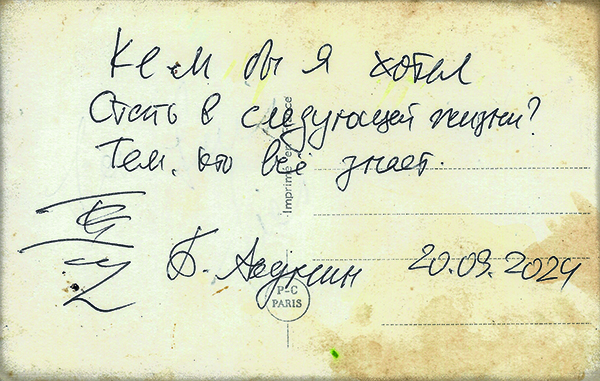 Кем бы я хотел
Стать в следующей жизни?
Тем, кто всё знает.
Б. Акунин 20.09.2024
Imprimé en France
P-C
PARIS